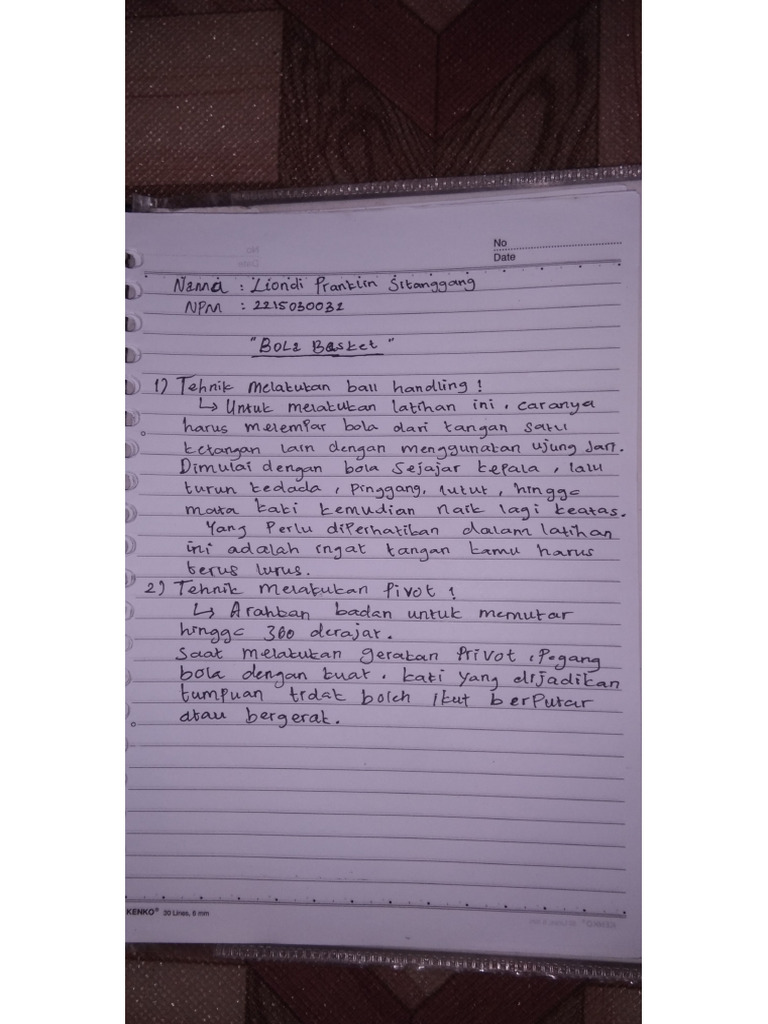 No
Date
Nama : Liondi Pranklin Sitanggang
NPM : 2215030032
"Bola Basket"
1) Tehnik Melakukan ball handling !
↳ Untuk melakukan latihan ini, caranya
harus melempar bola dari tangan satu
ketangan lain dengan menggunakan ujung Jari.
Dimulai dengan bola sejajar kepala, lalu
turun kedada, pinggang, lutut, hingga
mata kaki kemudian naik lagi keatas.
Yang Perlu diperhatikan dalam latihan
ini adalah ingat tangan kamu harus
terus lurus.
2) Tehnik melakukan Pivot !
↳ Arahkan badan untuk memutar
hingga 360 derajat.
Saat melakukan gerakan Privot, Pegang
bola dengan kuat, kaki yang dijadikan
tumpuan tidak boleh ikut berputar
atau bergerak.
KENKO® 30 Lines, 6 mm